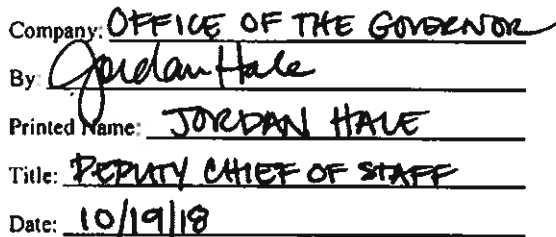 Company: OFFICE OF THE GOVERNOR
By: Jordan Hale
Printed Name: JORDAN HALE
Title: DEPUTY CHIEF OF STAFF
Date: 10/19/18